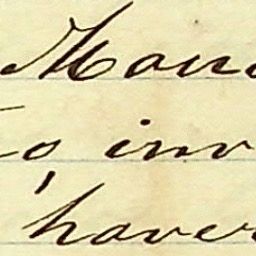 Mon
to, inv
haver